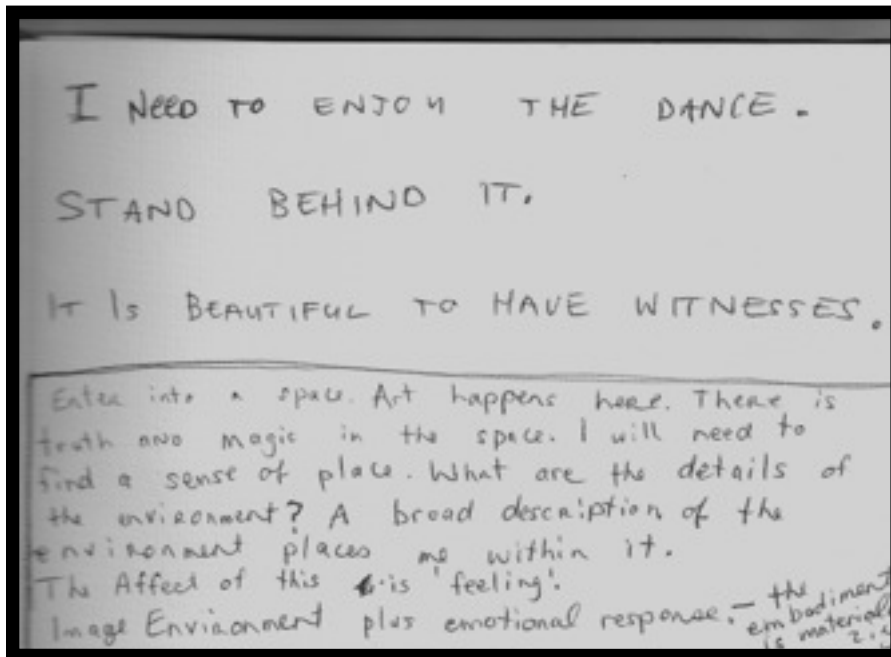 I NEED TO ENJOY THE DANCE.
STAND BEHIND IT.
IT IS BEAUTIFUL TO HAVE WITNESSES.
Enter into a space. Art happens here. There is
truth and magic in the space. I will need to
find a sense of place. What are the details of
the environment? A broad description of the
environment places me within it.
The Affect of this is 'feeling'.
Image Environment plus emotional response. — the
embodiment
is material